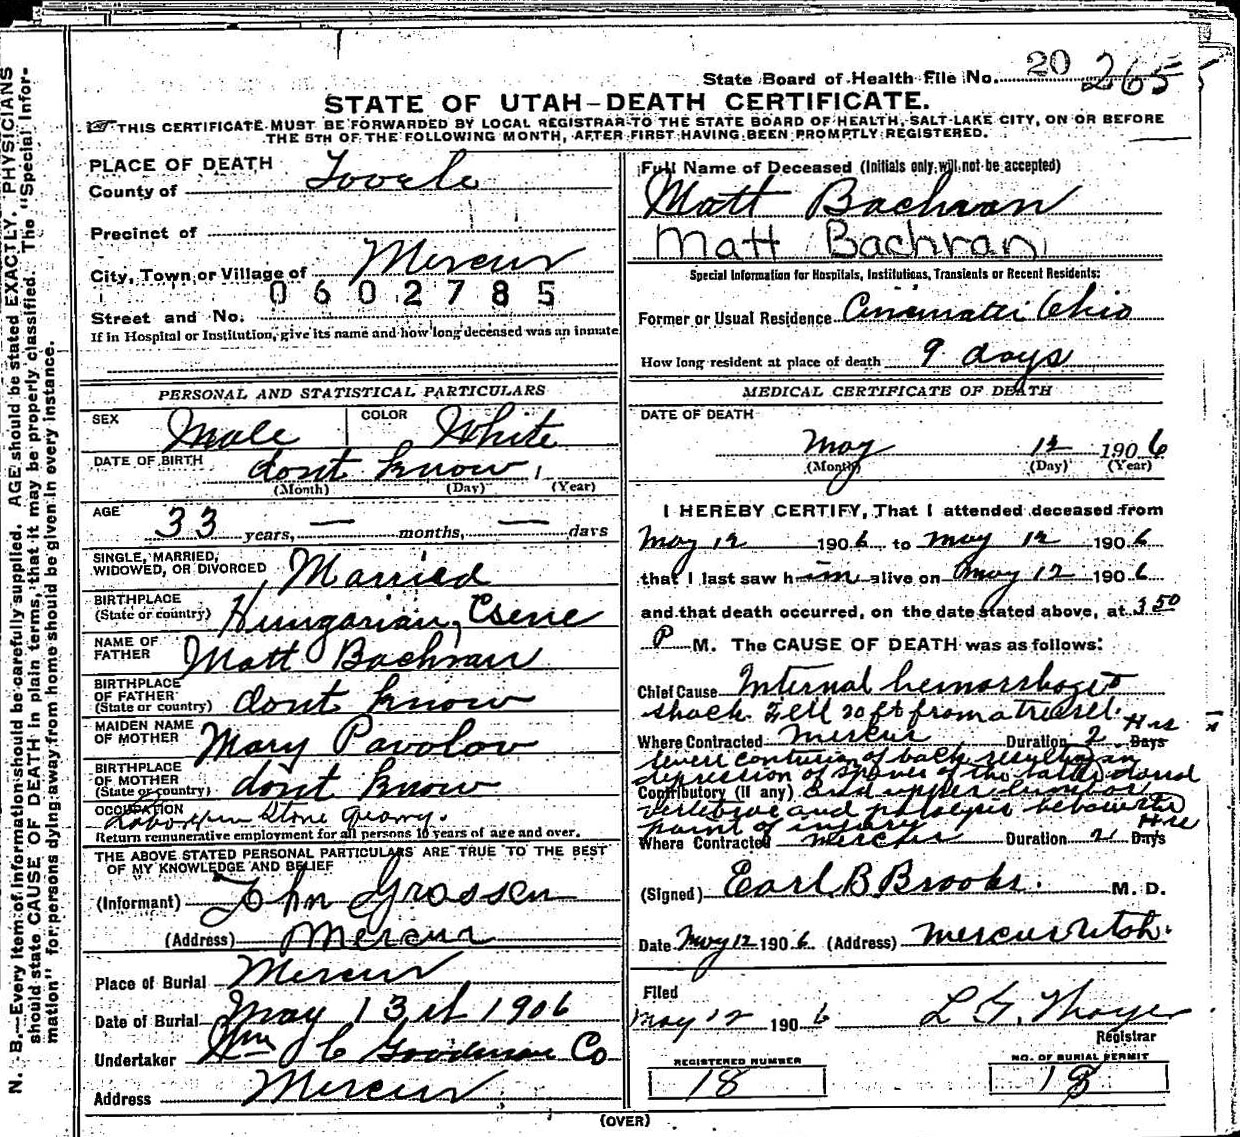 State Board of Health File No. 20 265
STATE OF UTAH-DEATH CERTIFICATE.
THIS CERTIFICATE MUST BE FORWARDED BY LOCAL REGISTRAR TO THE STATE BOARD OF HEALTH, SALT LAKE CITY, ON OR BEFORE
THE 5TH OF THE FOLLOWING MONTH, AFTER FIRST HAVING BEEN PROMPTLY REGISTERED.
N. B.—Every item of information should be carefully supplied. AGE should be stated EXACTLY. PHYSICIANS
should state CAUSE OF DEATH in plain terms, that it may be properly classified. The "Special Infor-
mation" for persons dying away from home should be given in every instance.
PLACE OF DEATH
County of Tooele
Precinct of
City, Town or Village of Mercur
0602785
Street and No.
If in Hospital or Institution, give its name and how long deceased was an inmate
PERSONAL AND STATISTICAL PARTICULARS
SEX Male COLOR White
DATE OF BIRTH dont know
(Month) (Day) (Year)
AGE 33 years, — months, — days
SINGLE, MARRIED,
WIDOWED, OR DIVORCED Married
BIRTHPLACE
(State or country) Hungarian, Csene
NAME OF
FATHER Matt Bachran
BIRTHPLACE
OF FATHER
(State or country) dont know
MAIDEN NAME
OF MOTHER Mary Pavolov
BIRTHPLACE
OF MOTHER
(State or country) dont know
OCCUPATION Labor in Stone Quarry.
Return remunerative employment for all persons 10 years of age and over.
THE ABOVE STATED PERSONAL PARTICULARS ARE TRUE TO THE BEST
OF MY KNOWLEDGE AND BELIEF
(Informant) John Grossen
(Address) Mercur
Place of Burial Mercur
Date of Burial May 13th 1906
Undertaker Wm J C Goodman Co
Address Mercur
Full Name of Deceased (Initials only will not be accepted)
Matt Bachran
Matt Bachran
Special Information for Hospitals, Institutions, Transients or Recent Residents:
Former or Usual Residence Cincinatti Ohio
How long resident at place of death 9 days
MEDICAL CERTIFICATE OF DEATH
DATE OF DEATH
May 12 1906
(Month) (Day) (Year)
I HEREBY CERTIFY, That I attended deceased from
May 12 1906 to May 12 1906
that I last saw him alive on May 12 1906
and that death occurred, on the date stated above, at 3 50
P M. The CAUSE OF DEATH was as follows:
Chief Cause Internal hemorrhage &
shock. Fell 20 ft from a tressel.
Where Contracted Mercur Duration 2 Hrs Days
severe contusion of back resulting in
depression of spines of the last dorsal
Contributory (if any) and upper lumbar
vertebrae and paralysis below the
point of injury
Where Contracted Mercur Duration 2 Hrs Days
(Signed) Earl B Brooks. M. D.
Date May 12 1906 (Address) Mercur Utah.
Filed
May 12 1906 L G. Thayer
Registrar
REGISTERED NUMBER
18
NO. OF BURIAL PERMIT
18
(OVER)